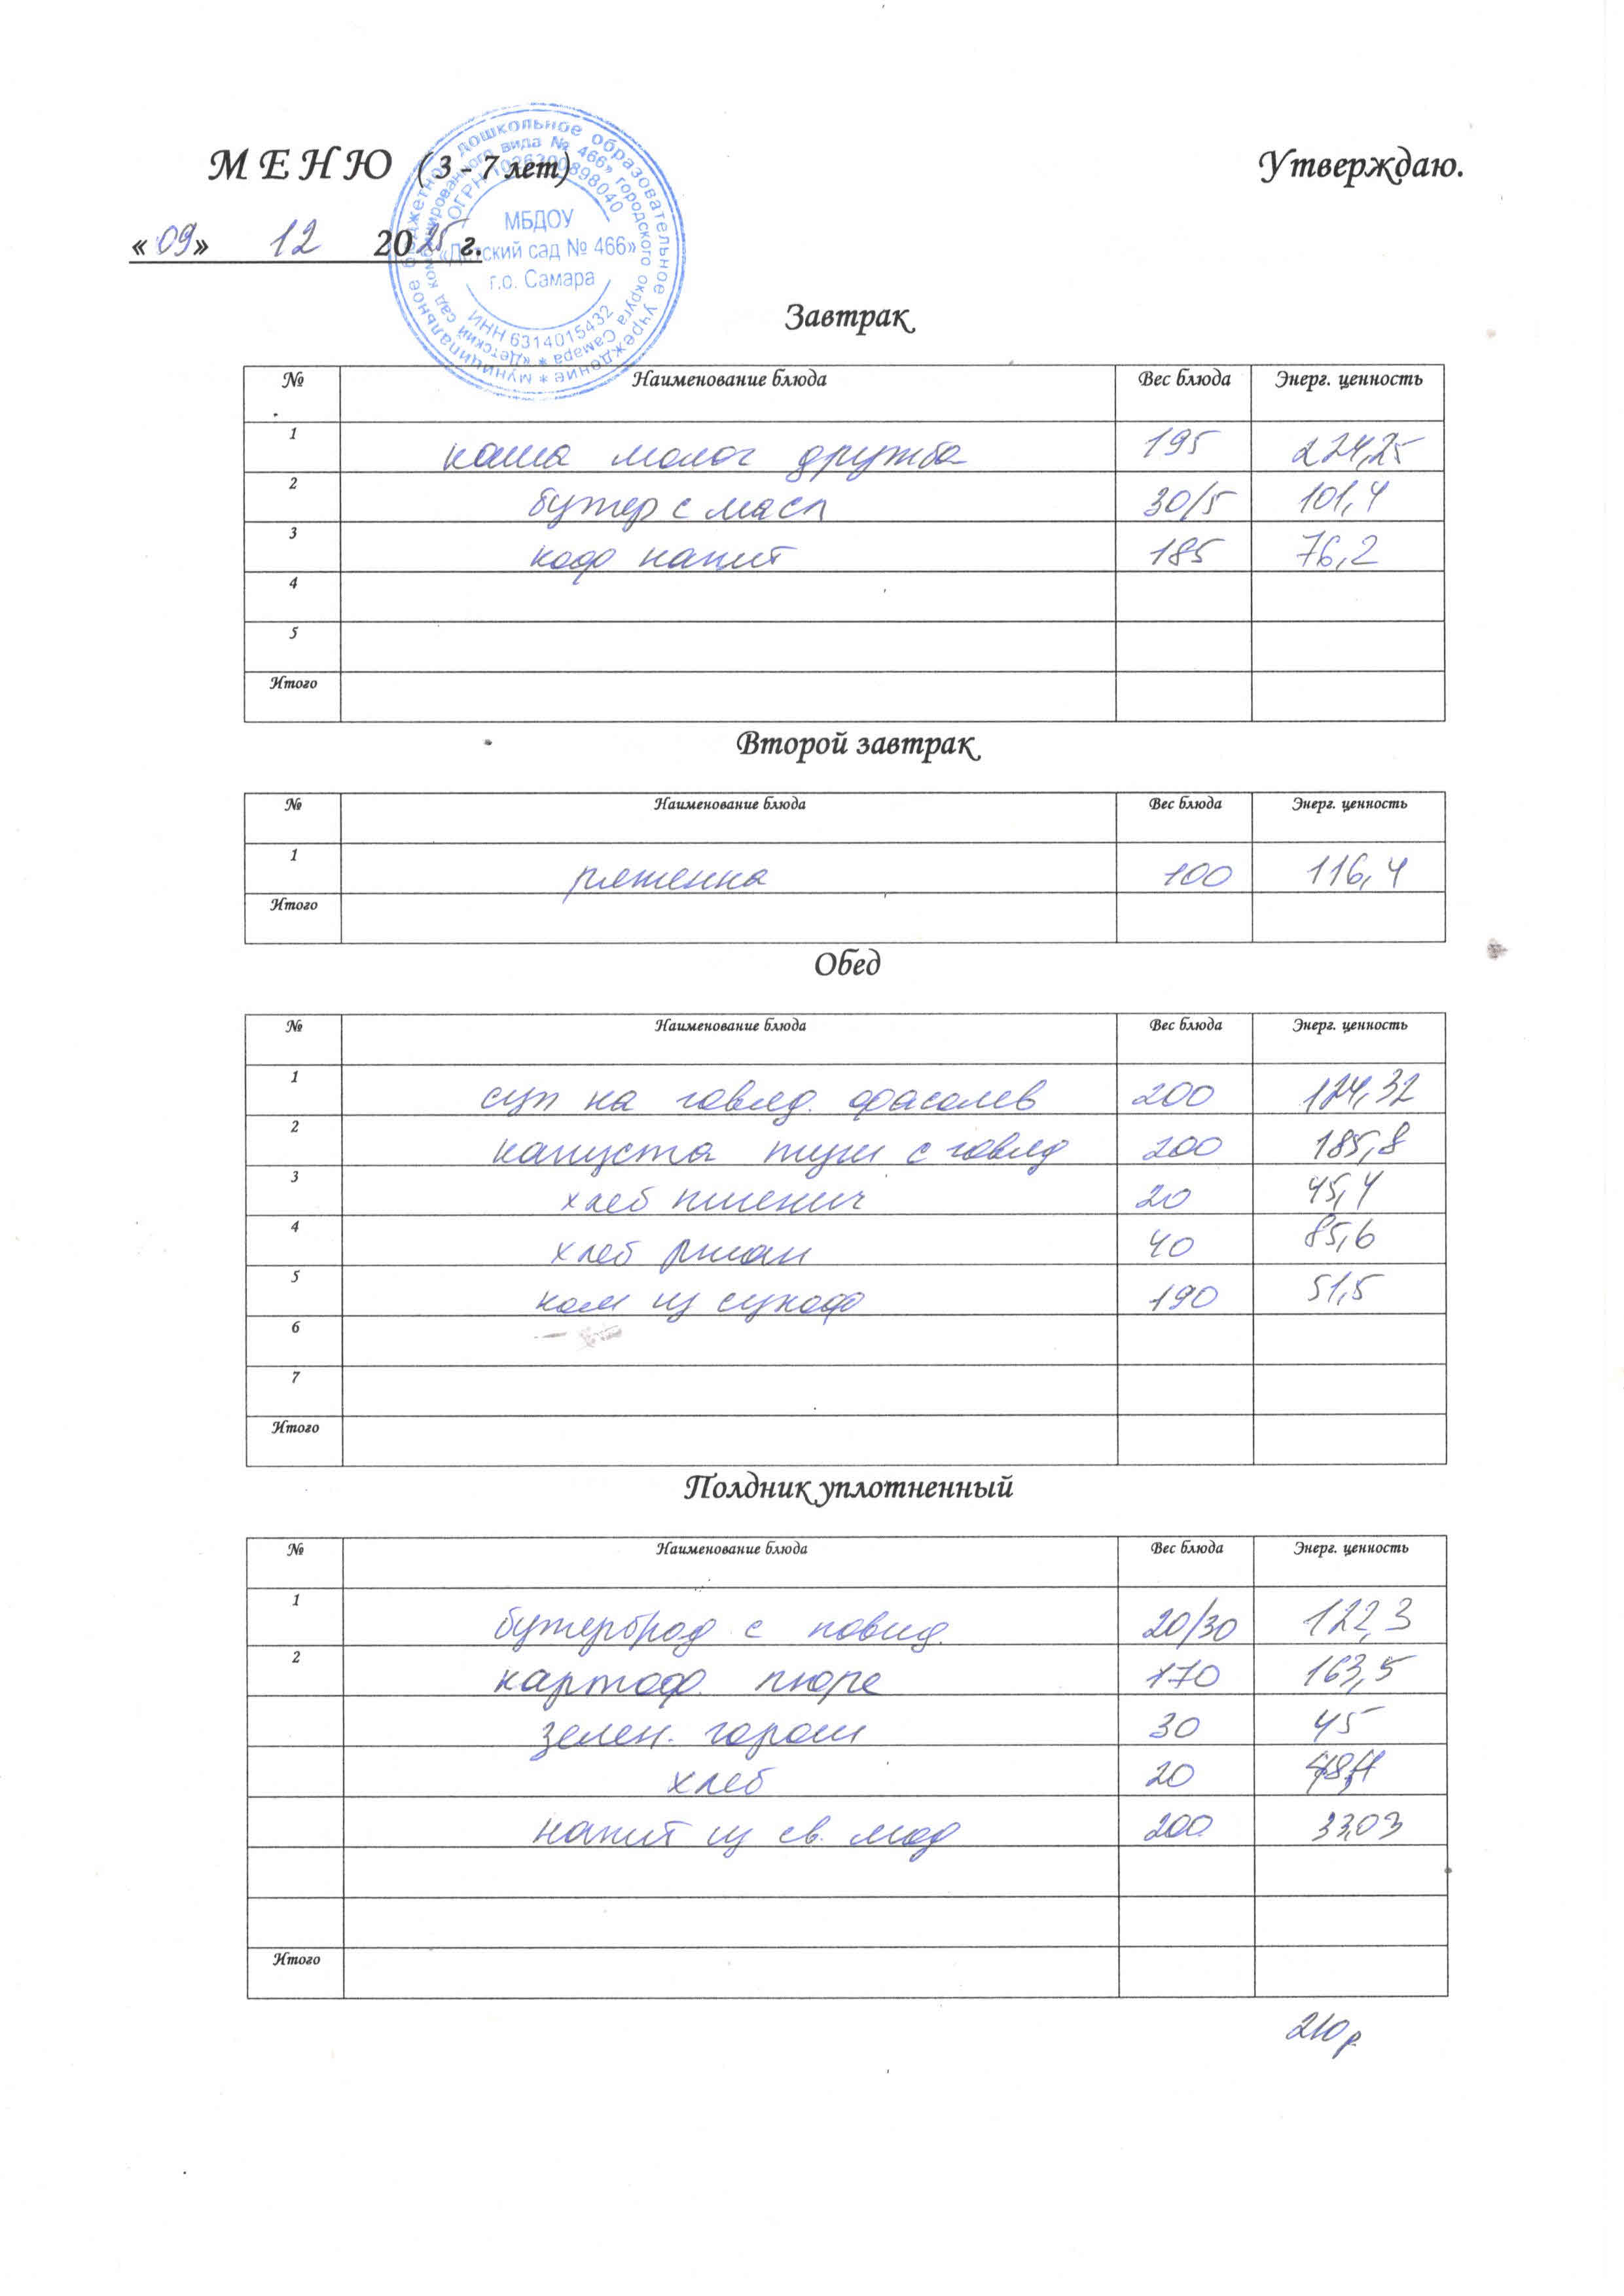 М Е Н Ю ( 3 - 7 лет)
Утверждаю.
« 09 » 12 2025 г.
муниципальное бюджетное дошкольное образовательное учреждение *
«Детский сад комбинированного вида № 466» городского округа Самара *
ОГРН 1026300898040
МБДОУ
«Детский сад № 466»
г.о. Самара
ИНН 6314015432
Завтрак
№ Наименование блюда Вес блюда Энерг. ценность
1 каша молоч дружба 195 224,25
2 бутер с масл 30/5 101,4
3 коф напит 185 76,2
4
5
Итого
Второй завтрак
№ Наименование блюда Вес блюда Энерг. ценность
1 ряженка 100 116,4
Итого
Обед
№ Наименование блюда Вес блюда Энерг. ценность
1 суп на говяд. фасолев 200 124,32
2 капуста туш с говяд 200 185,8
3 хлеб пшенич 20 45,4
4 хлеб ржан 40 85,6
5 ком из сухоф 190 51,5
6
7
Итого
Полдник уплотненный
№ Наименование блюда Вес блюда Энерг. ценность
1 бутерброд с повид. 20/30 122,3
2 картоф. пюре 170 163,5
зелен. горош 30 45
хлеб 20
напит из св. 200 33,03
Итого
210 р